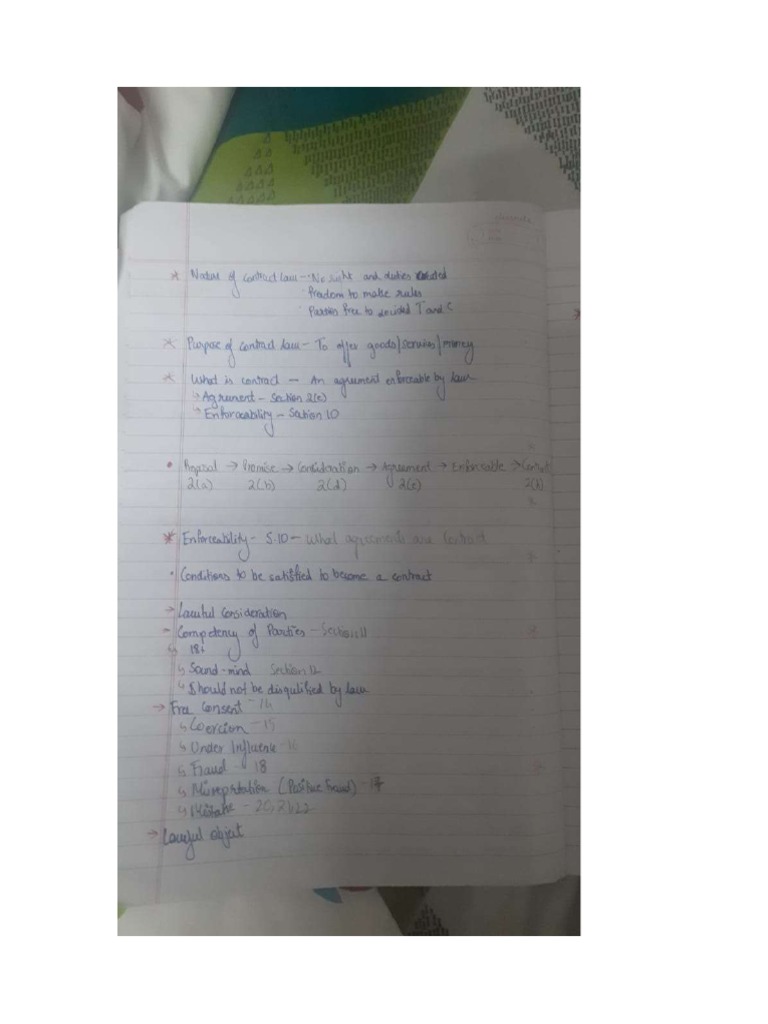 * Nature of contract law - · No right and duties created
· Freedom to make rules
· Parties free to decided T and C
* Purpose of contract law - To offer goods/services/money
* What is contract - An agreement enforceable by law
→ Agreement - Section 2(e)
→ Enforceability - Section 10
• Proposal → Promise → Consideration → Agreement → Enforceable → Contract
2(a) 2(b) 2(d) 2(e) 2(h)
* Enforceability - S.10 - What agreements are contract
• Conditions to be satisfied to become a contract
→ Lawful consideration
→ Competency of Parties - Section 11
↳ 18+
↳ Sound mind Section 12
↳ Should not be disqulified by law
→ Free consent - 14
↳ Coercion - 15
↳ Under Influence - 16
↳ Fraud - 18
↳ Misreprtation (Positive Fraud) - 17
↳ Mistake - 20, 21, 22
→ Lawful object